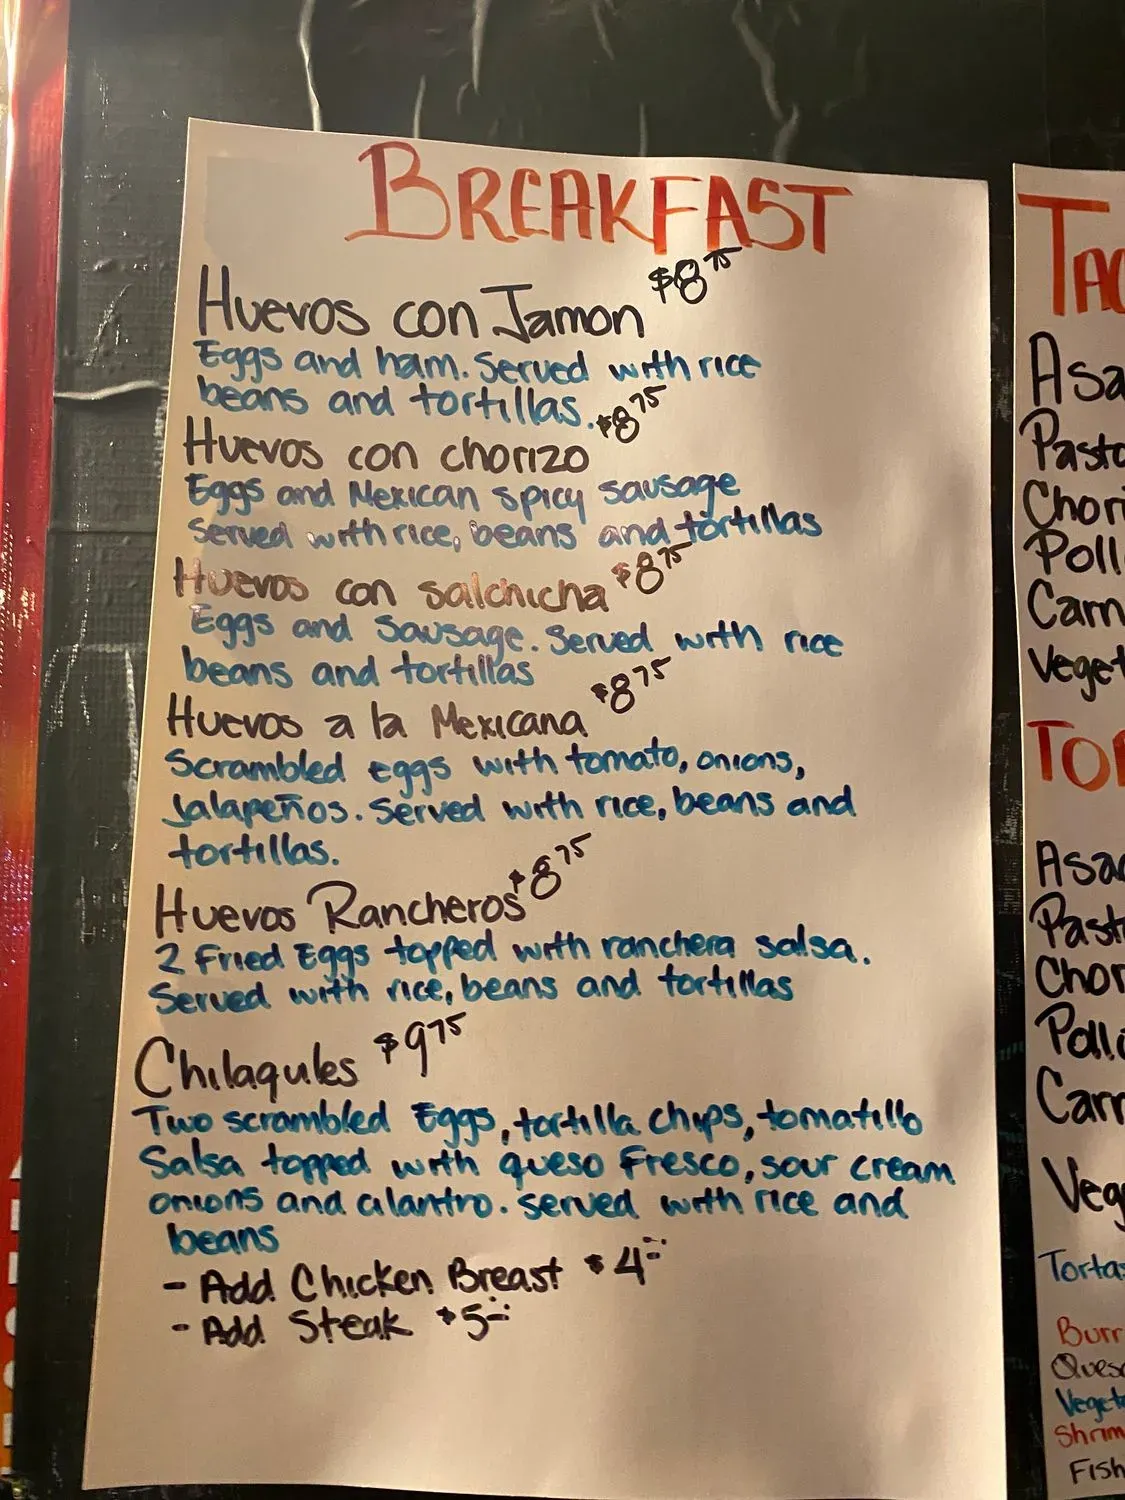 BREAKFAST
Huevos con Jamon $8.75
Eggs and ham. Served with rice
beans and tortillas.
Huevos con chorizo $8.75
Eggs and Mexican spicy sausage
served with rice, beans and tortillas
Huevos con salchicha $8.75
Eggs and Sausage. Served with rice
beans and tortillas
Huevos a la Mexicana $8.75
Scrambled eggs with tomato, onions,
Jalapeños. Served with rice, beans and
tortillas.
Huevos Rancheros $8.75
2 Fried Eggs topped with ranchera salsa.
Served with rice, beans and tortillas
Chilaqules $9.75
Two scrambled Eggs, tortilla chips, tomatillo
Salsa topped with queso Fresco, sour cream
onions and cilantro. Served with rice and
beans
- Add Chicken Breast $4
- Add Steak $5
Tortas